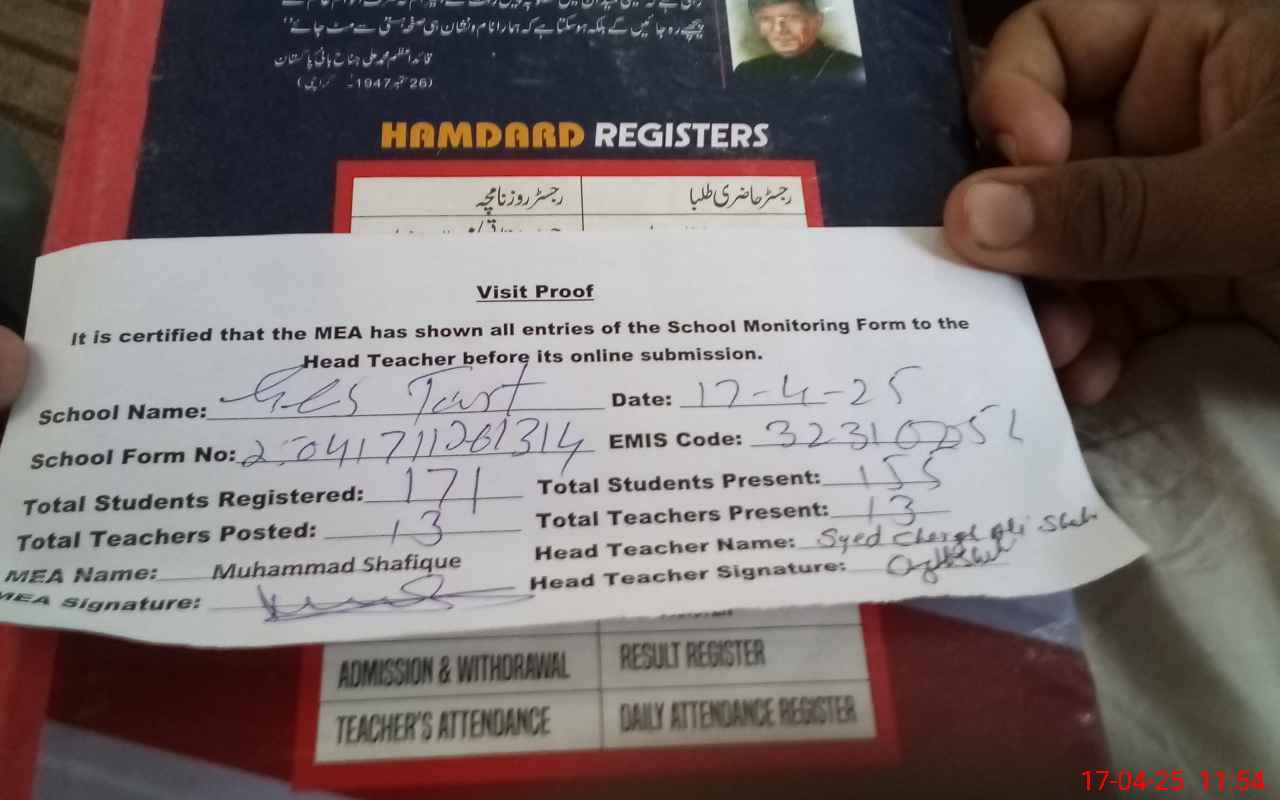 پیچھے رہ جائیں گے بلکہ ہوسکتا ہے کہ ہمارا نام و نشان ہی صفحہ ہستی سے مٹ جائے"
قائداعظم محمد علی جناح بانی پاکستان
(26 ستمبر 1947ء کراچی)
HAMDARD REGISTERS
رجسٹر حاضری طلبا رجسٹر روزنامچہ
Visit Proof
It is certified that the MEA has shown all entries of the School Monitoring Form to the
Head Teacher before its online submission.
School Name: Date: 17-4-25
School Form No: EMIS Code:
Total Students Registered: 171 Total Students Present: 155
Total Teachers Posted: 13 Total Teachers Present: 13
MEA Name: Muhammad Shafique Head Teacher Name: Syed Ali Shah
MEA Signature: Head Teacher Signature:
ADMISSION & WITHDRAWAL RESULT REGISTER
TEACHER'S ATTENDANCE DAILY ATTENDANCE REGISTER
17-04-25 11:54